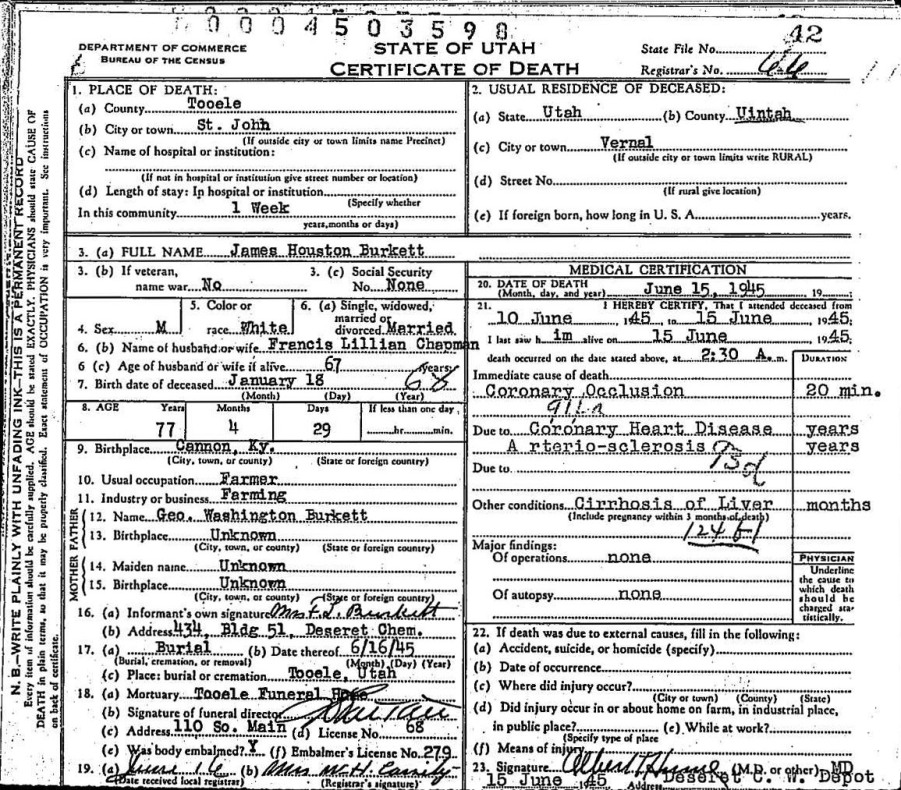 00004503598
DEPARTMENT OF COMMERCE
BUREAU OF THE CENSUS
STATE OF UTAH
CERTIFICATE OF DEATH
State File No. 42
Registrar's No. 66
N. B.—WRITE PLAINLY WITH UNFADING INK—THIS IS A PERMANENT RECORD
Every item of information should be carefully supplied. AGE should be stated EXACTLY. PHYSICIANS should state CAUSE OF
DEATH in plain terms, so that it may be properly classified. Exact statement of OCCUPATION is very important. See instructions
on back of certificate.
1. PLACE OF DEATH:
(a) County Tooele
(b) City or town St. John
(If outside city or town limits name Precinct)
(c) Name of hospital or institution:
(If not in hospital or institution give street number or location)
(d) Length of stay: In hospital or institution
(Specify whether
In this community 1 Week
years, months or days)
2. USUAL RESIDENCE OF DECEASED:
(a) State Utah (b) County Uintah
(c) City or town Vernal
(If outside city or town limits write RURAL)
(d) Street No.
(If rural give location)
(e) If foreign born, how long in U. S. A. years.
3. (a) FULL NAME James Houston Burkett
3. (b) If veteran,
name war No
3. (c) Social Security
No. None
4. Sex M
5. Color or
race White
6. (a) Single, widowed,
married or
divorced Married
6. (b) Name of husband or wife Francis Lillian Chapman
6 (c) Age of husband or wife if alive 67 years
7. Birth date of deceased January 18 68
(Month) (Day) (Year)
8. AGE Years Months Days If less than one day
77 4 29 hr. min.
9. Birthplace Cannon, Ky.
(City, town, or county) (State or foreign country)
10. Usual occupation Farmer
11. Industry or business Farming
FATHER
12. Name Geo. Washington Burkett
13. Birthplace Unknown
(City, town, or county) (State or foreign country)
MOTHER
14. Maiden name Unknown
15. Birthplace Unknown
(City, town, or county) (State or foreign country)
16. (a) Informant's own signature Mrs F. L. Burkett
(b) Address 434, Bldg 51, Deseret Chem.
17. (a) Burial (b) Date thereof 6/16/45
(Burial, cremation, or removal) (Month) (Day) (Year)
(c) Place: burial or cremation Tooele, Utah
18. (a) Mortuary Tooele Funeral Home
(b) Signature of funeral director
(c) Address 110 So. Main (d) License No. 68
(e) Was body embalmed? Y (f) Embalmer's License No. 279
19. (a) June 16 (b) Mrs W. H.
(Date received local registrar) (Registrar's signature)
MEDICAL CERTIFICATION
20. DATE OF DEATH
(Month, day, and year) June 15, 1945 19
21. I HEREBY CERTIFY, That I attended deceased from
10 June, 1945, to 15 June, 1945;
I last saw him alive on 15 June, 1945;
death occurred on the date stated above, at 2:30 A.m.
DURATION
Immediate cause of death
Coronary Occlusion 20 min.
Due to Coronary Heart Disease years
A rterio-sclerosis years
Due to
Other conditions Cirrhosis of Liver months
(Include pregnancy within 3 months of death)
Major findings:
Of operations none
Of autopsy none
PHYSICIAN
Underline
the cause to
which death
should be
charged sta-
tistically.
22. If death was due to external causes, fill in the following:
(a) Accident, suicide, or homicide (specify)
(b) Date of occurrence
(c) Where did injury occur?
(City or town) (County) (State)
(d) Did injury occur in or about home on farm, in industrial place,
in public place? (e) While at work?
(Specify type of place
(f) Means of injury
23. Signature Albert (M.D. or other) MD
15 June 45 Address Deseret C. W. Depot